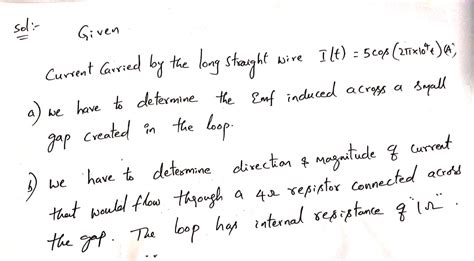 Sol:-
Given
Current Carried by the long straight wire I(t) = 5cos(2π×10⁴t)(A),
a) we have to determine the Emf induced across a small
gap created in the loop.
b) we have to determine direction & magnitude of current
that would flow through a 4Ω resistor connected across
the gap. The loop has internal resistance of "1Ω".